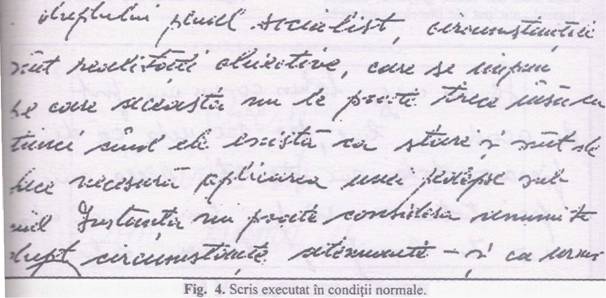 dreptului penal socialist, circumstanței
sînt realități obiective, care se impun
pe care aceasta nu le poate trece
atunci cînd ele există ca stare și sînt de
face necesară aplicarea unei pedepse sub
Instanța nu poate considera anumite
drept circumstanțe atenuante - și ca urmar
Fig. 4. Scris executat în condiții normale.